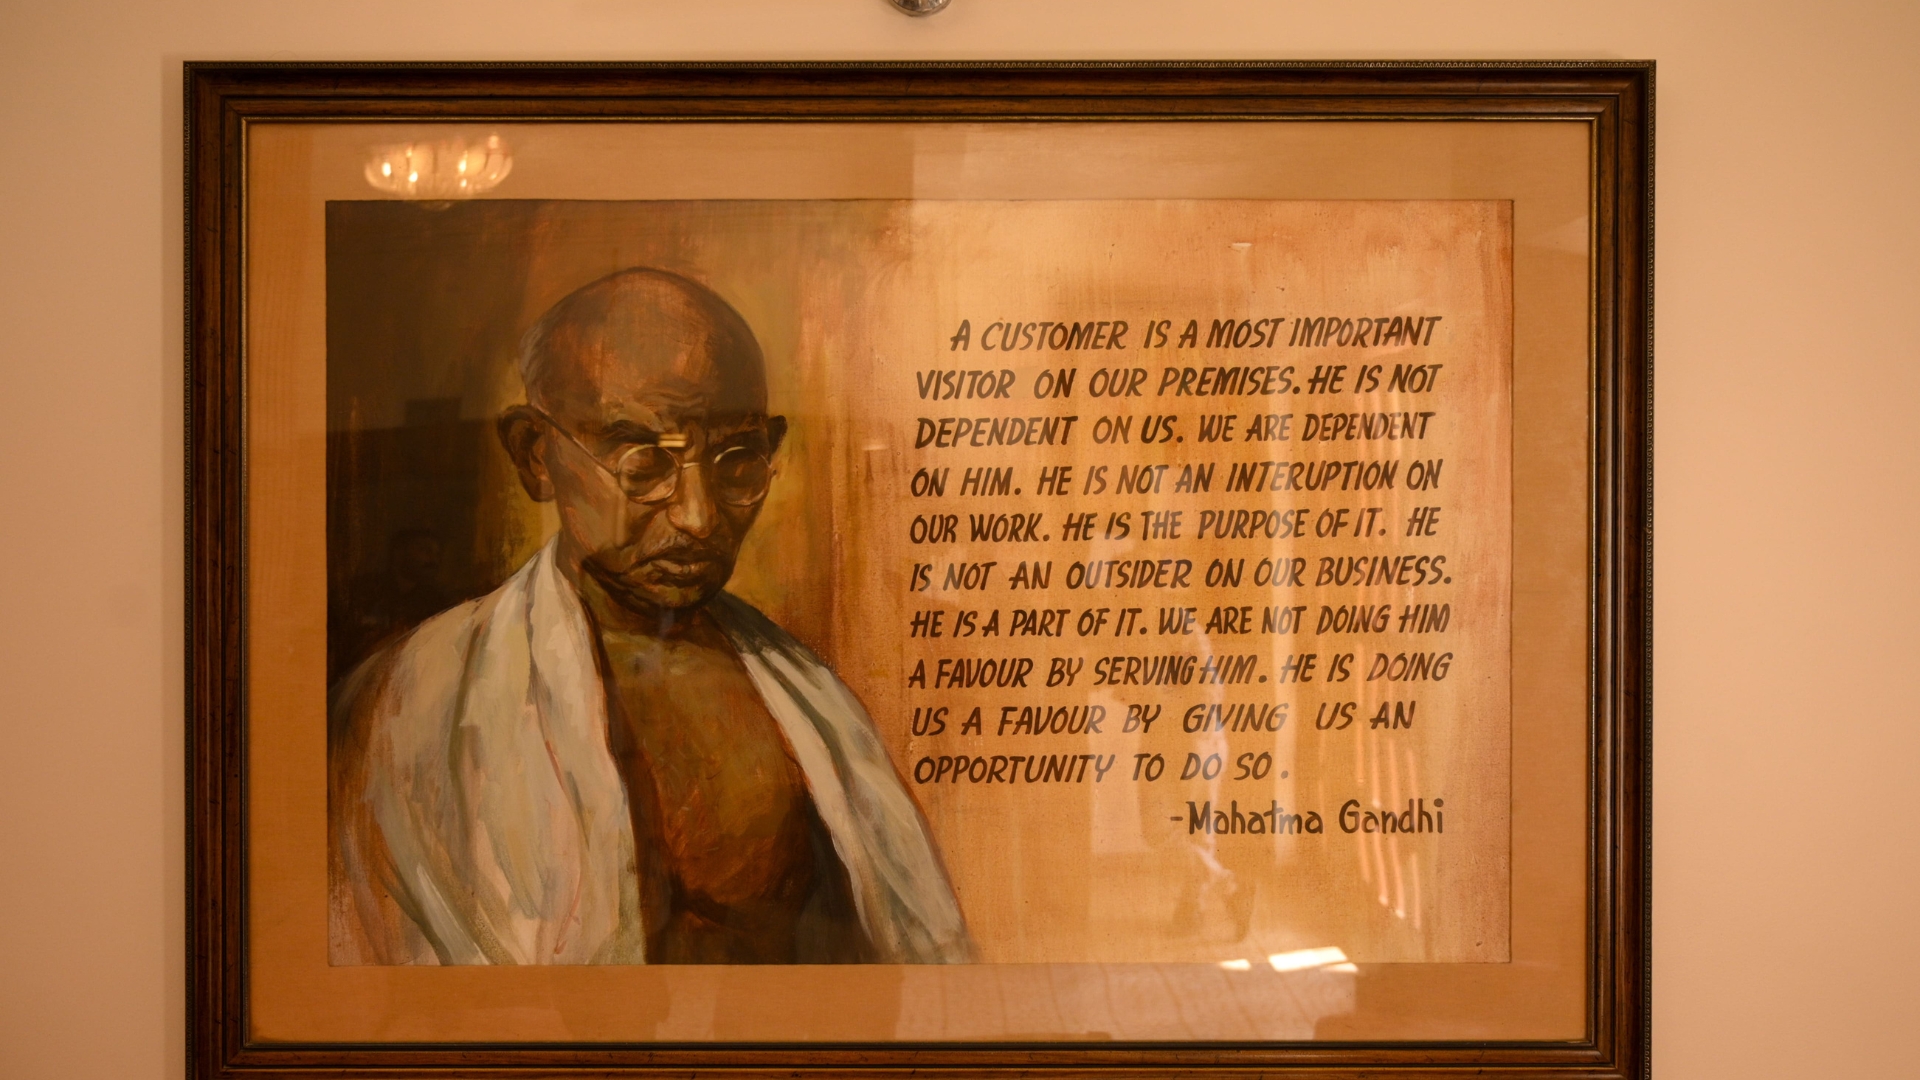 A CUSTOMER IS A MOST IMPORTANT
VISITOR ON OUR PREMISES. HE IS NOT
DEPENDENT ON US. WE ARE DEPENDENT
ON HIM. HE IS NOT AN INTERUPTION ON
OUR WORK. HE IS THE PURPOSE OF IT. HE
IS NOT AN OUTSIDER ON OUR BUSINESS.
HE IS A PART OF IT. WE ARE NOT DOING HIM
A FAVOUR BY SERVING HIM. HE IS DOING
US A FAVOUR BY GIVING US AN
OPPORTUNITY TO DO SO.
-Mahatma Gandhi